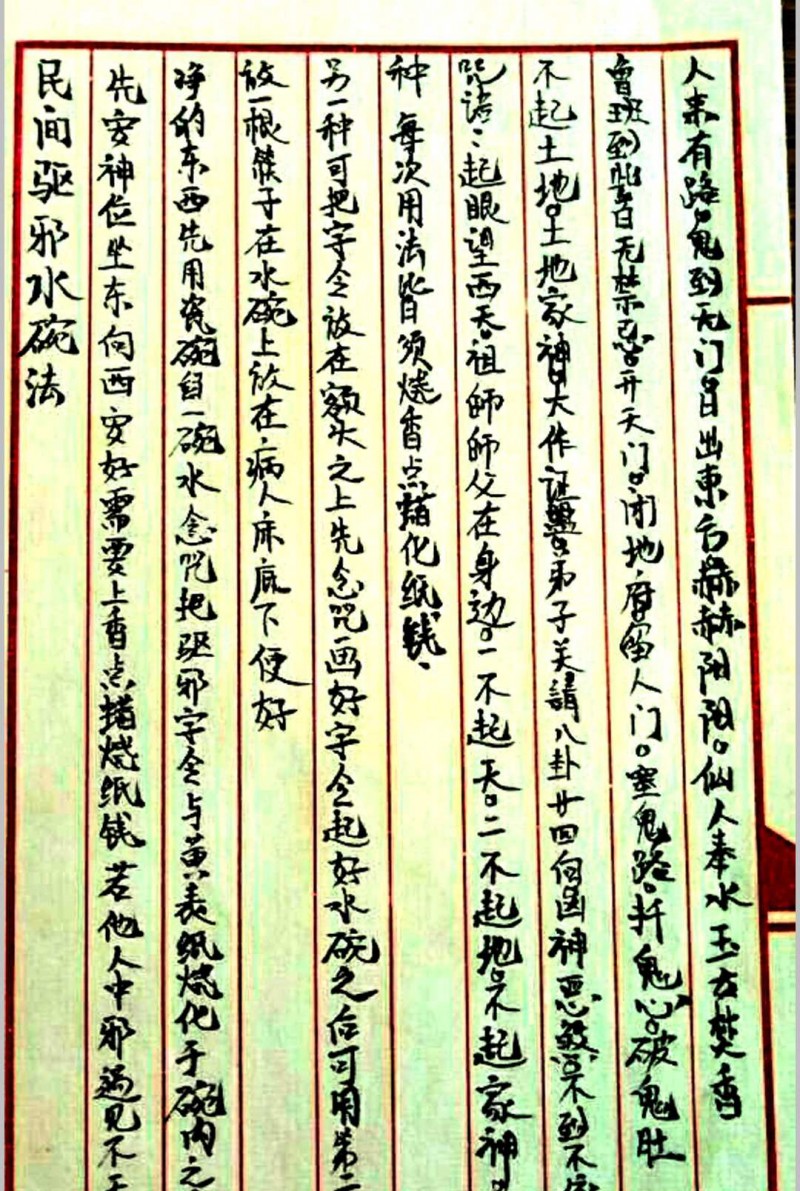 民间驱邪水碗法
先安神位坐东向西安好需要上香点蜡烧纸钱 若他人中邪遇见不
净的东西先用瓷碗舀一碗水念咒把驱邪字令与黄表纸烧化于碗内之
放一根筷子在水碗上放在病人床底下便好
另一种可把字令放在额头之上先念咒画好字令起好水碗之后可用第二
种 每次用法皆须烧香点蜡化纸钱、
咒语:起眼望西天。祖师师父在身边。一不起天。二不起地。不起家神。
不起土地。土地家神。大作证盟。弟子关請八卦廿四向凶神恶煞。不到不
鲁班到此百无禁忌。开天门。闭地府。留人门。塞鬼路、扦鬼心。破鬼肚
人来有路。鬼到无门。日出東方赫赫阳阳。仙人奉水玉女焚香